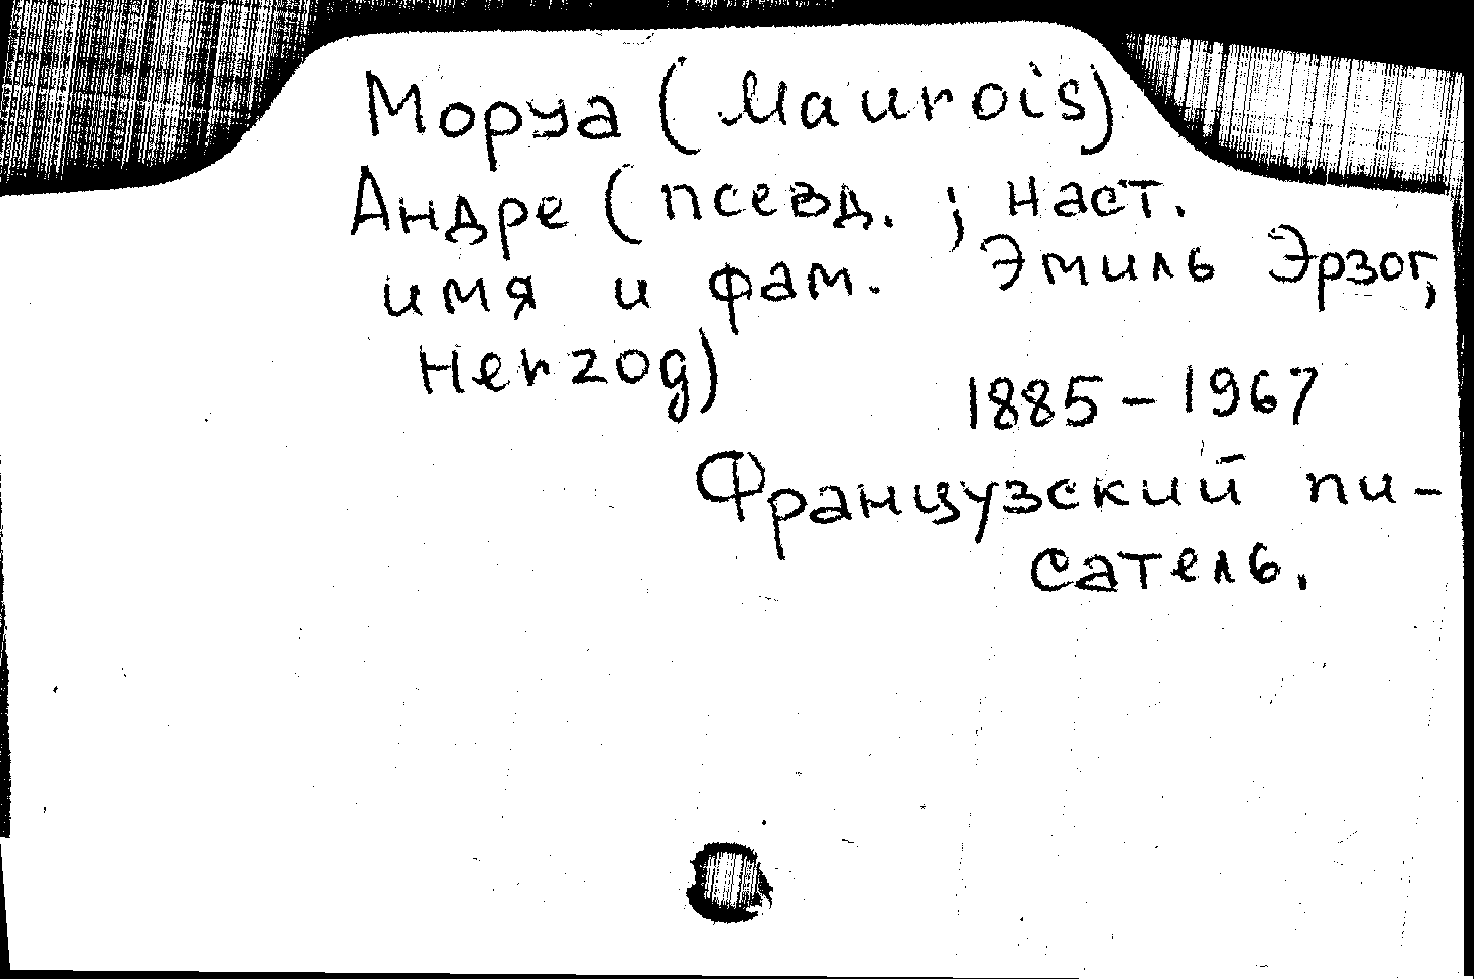 Моруа (Maurois)
Андре (псевд. ; наст.
имя и фам. Эмиль Эрзог,
Herzog)
1885 - 1967
Французский пи-
сатель.